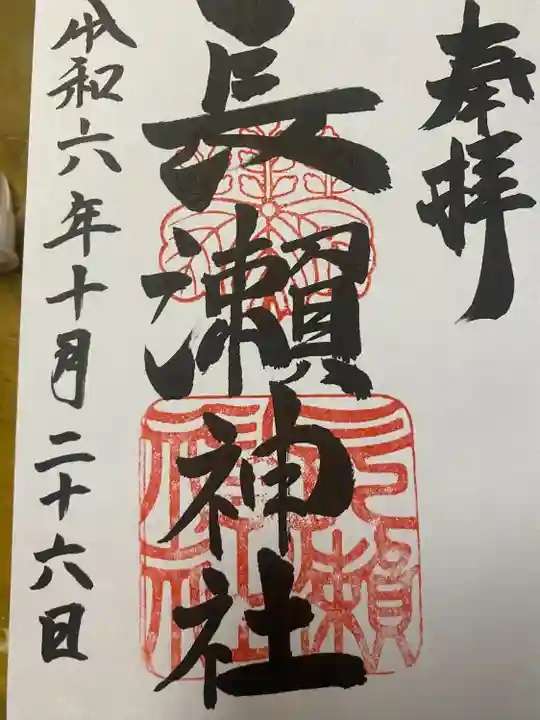 奉拝
長瀬神社
令和六年十月二十六日